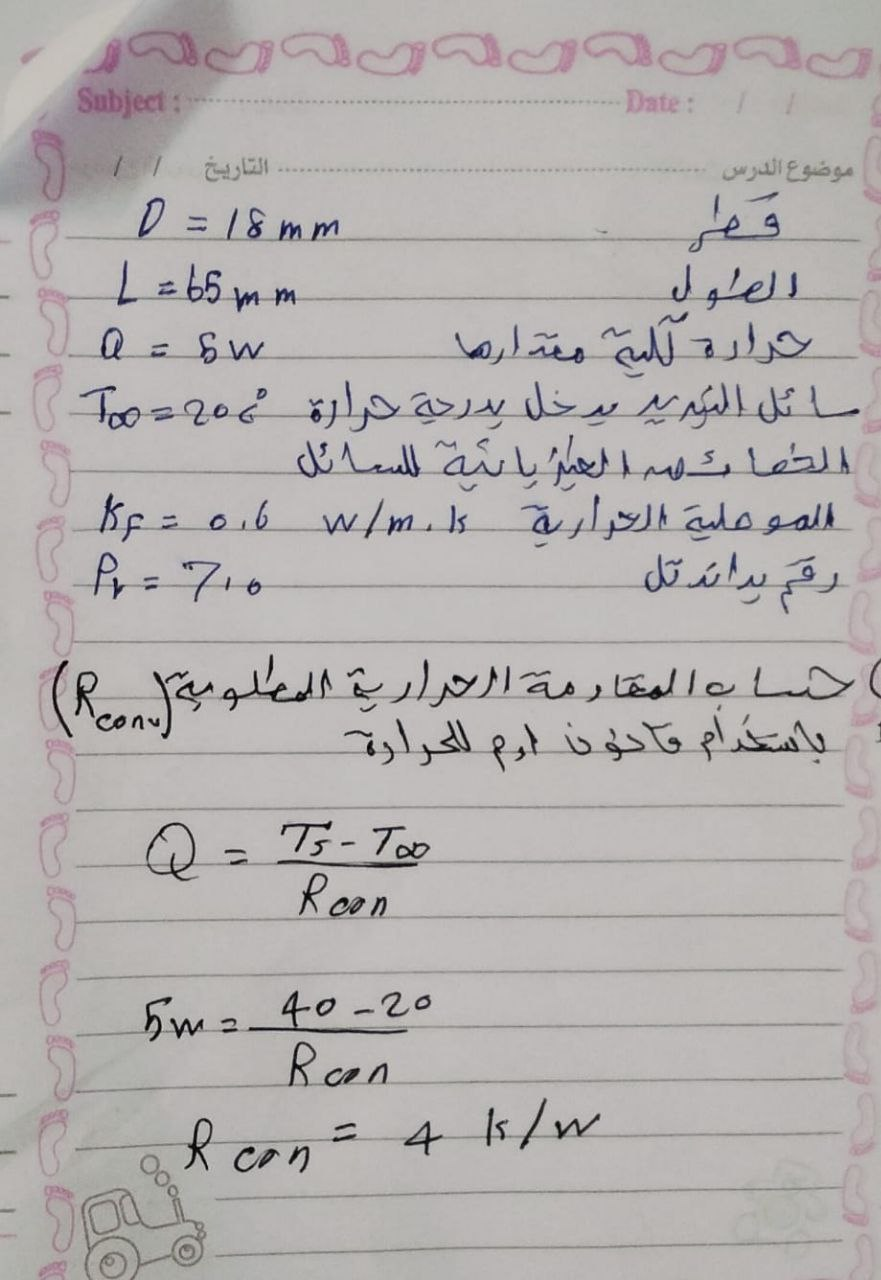 Subject : Date : / /
موضوع الدرس التاريخ / /
قطر D = 18 mm
الطول L = 65 mm
حرارة كلية مقدارها Q = 5 W
سائل التبريد يدخل بدرجة حرارة T∞ = 20 c°
الخصائص الفيزيائية للسائل
الموصلية الحرارية Kf = 0.6 W/m.k
رقم براندتل Pr = 7.0
حساب المقاومة الحرارية المطلوبة (Rconv)
باستخدام قانون اوم للحرارة
Q = Ts - T∞ / Rcon
5w = 40 - 20 / Rcon
Rcon = 4 k/w